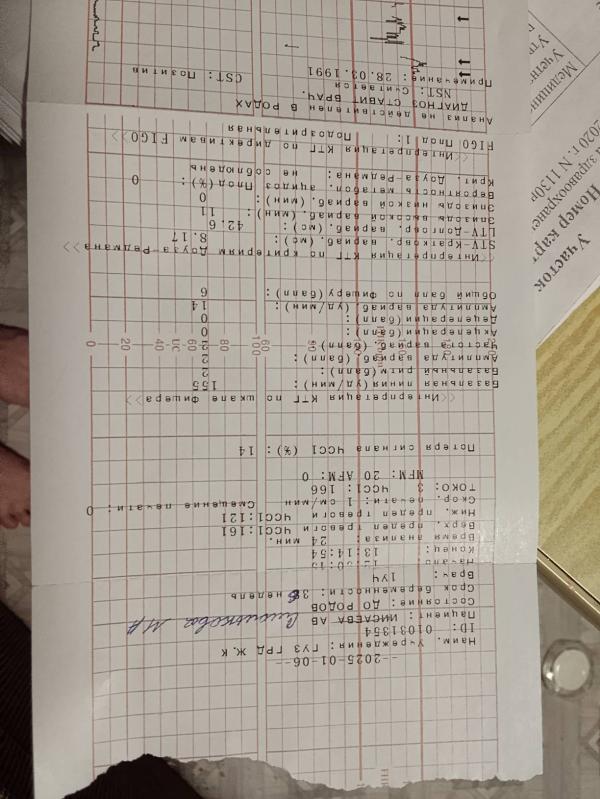 --2025-01-06--
Наим. Учреждения: ГУЗ ГРД Ж.К
ID: 01031354
Пациент АВ
Состояние: ДО РОДОВ
Срок беременности: недель
Врач: 1УЧ
Начало
Конец: 13:14:54
Время анализа: 24 мин.
Верх. предел тревоги ЧСС1:161
Ниж. предел тревоги ЧСС1:121
Скор. печати: 1 см/мин Смещение печати: 0
ТОКО: 3 ЧСС1: 166
MFM: 20 AFM: 0
Потеря сигнала ЧСС1 (%): 14
<<Интерпретация КТГ по шкале Фишера>>
Базальная линия(уд/мин): 155
Базальный ритм(балл): 2
Амплитуда вариаб.(балл): 2
Частота вариаб.(балл): 2
Акцелерации(балл): 0
Децелерации(балл): 0
Амплитуда вариаб.(уд/мин): 14
Общий балл по Фишеру(балл): 6
<<Интерпретация КТГ по критериям Доуза-Редмана>>
STV-Кратковр. вариаб.(мс): 8.17
LTV-Долговр. вариаб.(мс): 42.6
Эпизоды высокой вариаб.(мин): 11
Эпизоды низкой вариаб.(мин): 0
Вероятность метабол. ацидоз Плод(%): 0
Крит. Доуза-Редмана: не соблюдены
<<Интерпретация КТГ по директивам FIGO>>
FIGO Плод 1: Подозрительная
Анализ не действителен В РОДАХ
ДИАГНОЗ СТАВИТ ВРАЧ.
NST: Считается
Примечание: 28.03.1991
CST: Позитив
0 20 40 UC 60 80 100
60 90
Участок
Номер карт
здравоохране
2020 г. N 1130р
Медицин